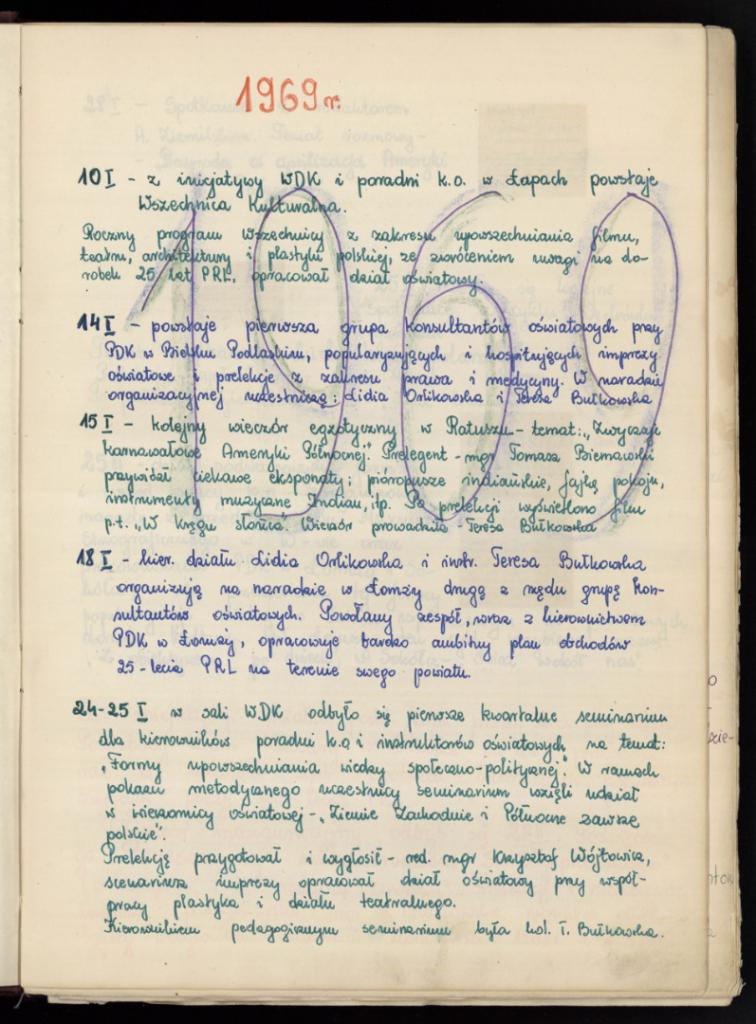 1969 r.
10 I - z inicjatywy WDK i poradni k.o. w Łapach powstaje
Wszechnica Kulturalna.
Roczny program wszechnicy z zakresu upowszechniania filmu,
teatru, architektury i plastyki polskiej, ze zwróceniem uwagi na do-
robek 25 lat PRL, opracował dział oświatowy.
14 I - powstaje pierwsza grupa konsultantów oświatowych przy
PDK w Bielsku Podlaskim, popularyzujących i hospitujących imprezy
oświatowe i prelekcje z zakresu prawa i medycyny. W naradzie
organizacyjnej uczestniczą: Lidia Orlikowska i Teresa Bułkowska
15 I - kolejny wieczór egzotyczny w Ratuszu - temat: "Zwyczaje
karnawałowe Ameryki Północnej". Prelegent - mgr Tomasz Biernawski
przywiózł ciekawe eksponaty: pióropusze indiańskie, fajkę pokoju,
instrumenty muzyczne Indian, itp. Po prelekcji wyświetlono film
p.t. "W kręgu słońca". Wieczór prowadziła - Teresa Bułkowska
18 I - kier. działu Lidia Orlikowska i instr. Teresa Bułkowska
organizują na naradzie w Łomży drugą z rzędu grupę kon-
sultantów oświatowych. Powołany zespół, wraz z kierownictwem
PDK w Łomży, opracowuje bardzo ambitny plan obchodów
25-lecia PRL na terenie swego powiatu.
24-25 I w sali WDK odbyło się pierwsze kwartalne seminarium
dla kierowników poradni k.o i instruktorów oświatowych na temat:
"Formy upowszechniania wiedzy społeczno-politycznej". W ramach
pokazu metodycznego uczestnicy seminarium wzięli udział
w wieczornicy oświatowej - "Ziemie Zachodnie i Północne zawsze
polskie".
Prelekcję przygotował i wygłosił - red. mgr Krzysztof Wójtowicz,
scenariusz imprezy opracował dział oświatowy przy współ-
pracy plastyka i działu teatralnego.
Kierownikiem pedagogicznym seminarium była kol. T. Bułkowska.
1969